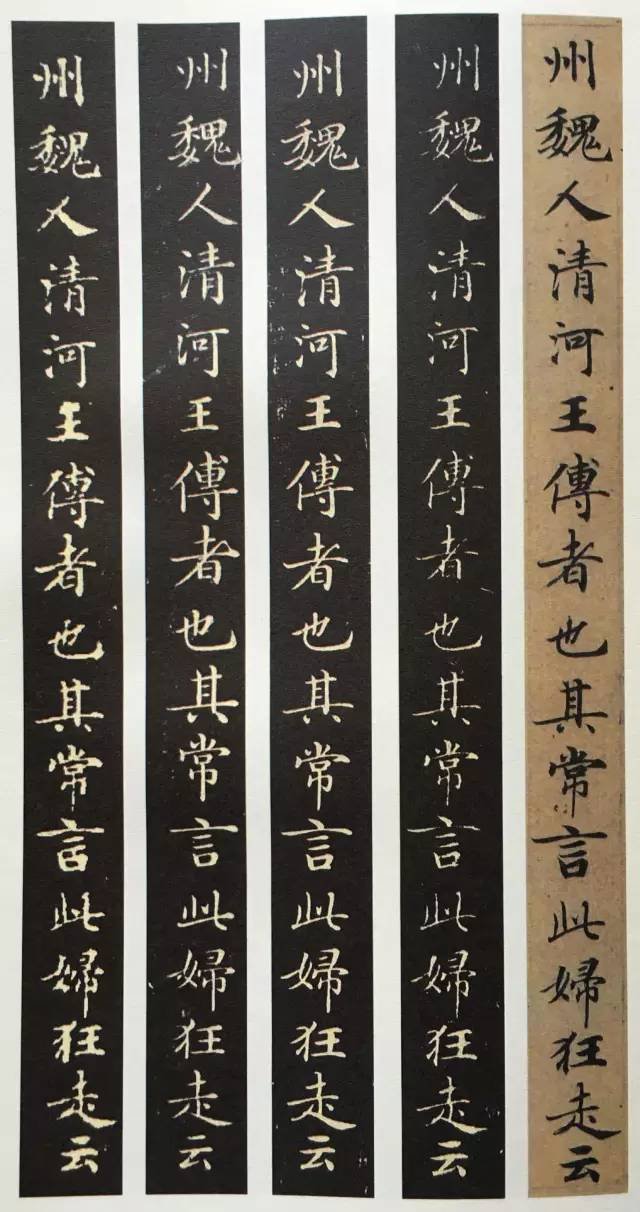 州魏人清河王傅者也其常言此婦狂走云
州魏人清河王傅者也其常言此婦狂走云
州魏人清河王傅者也其常言此婦狂走云
州魏人清河王傅者也其常言此婦狂走云
州魏人清河王傅者也其常言此婦狂走云